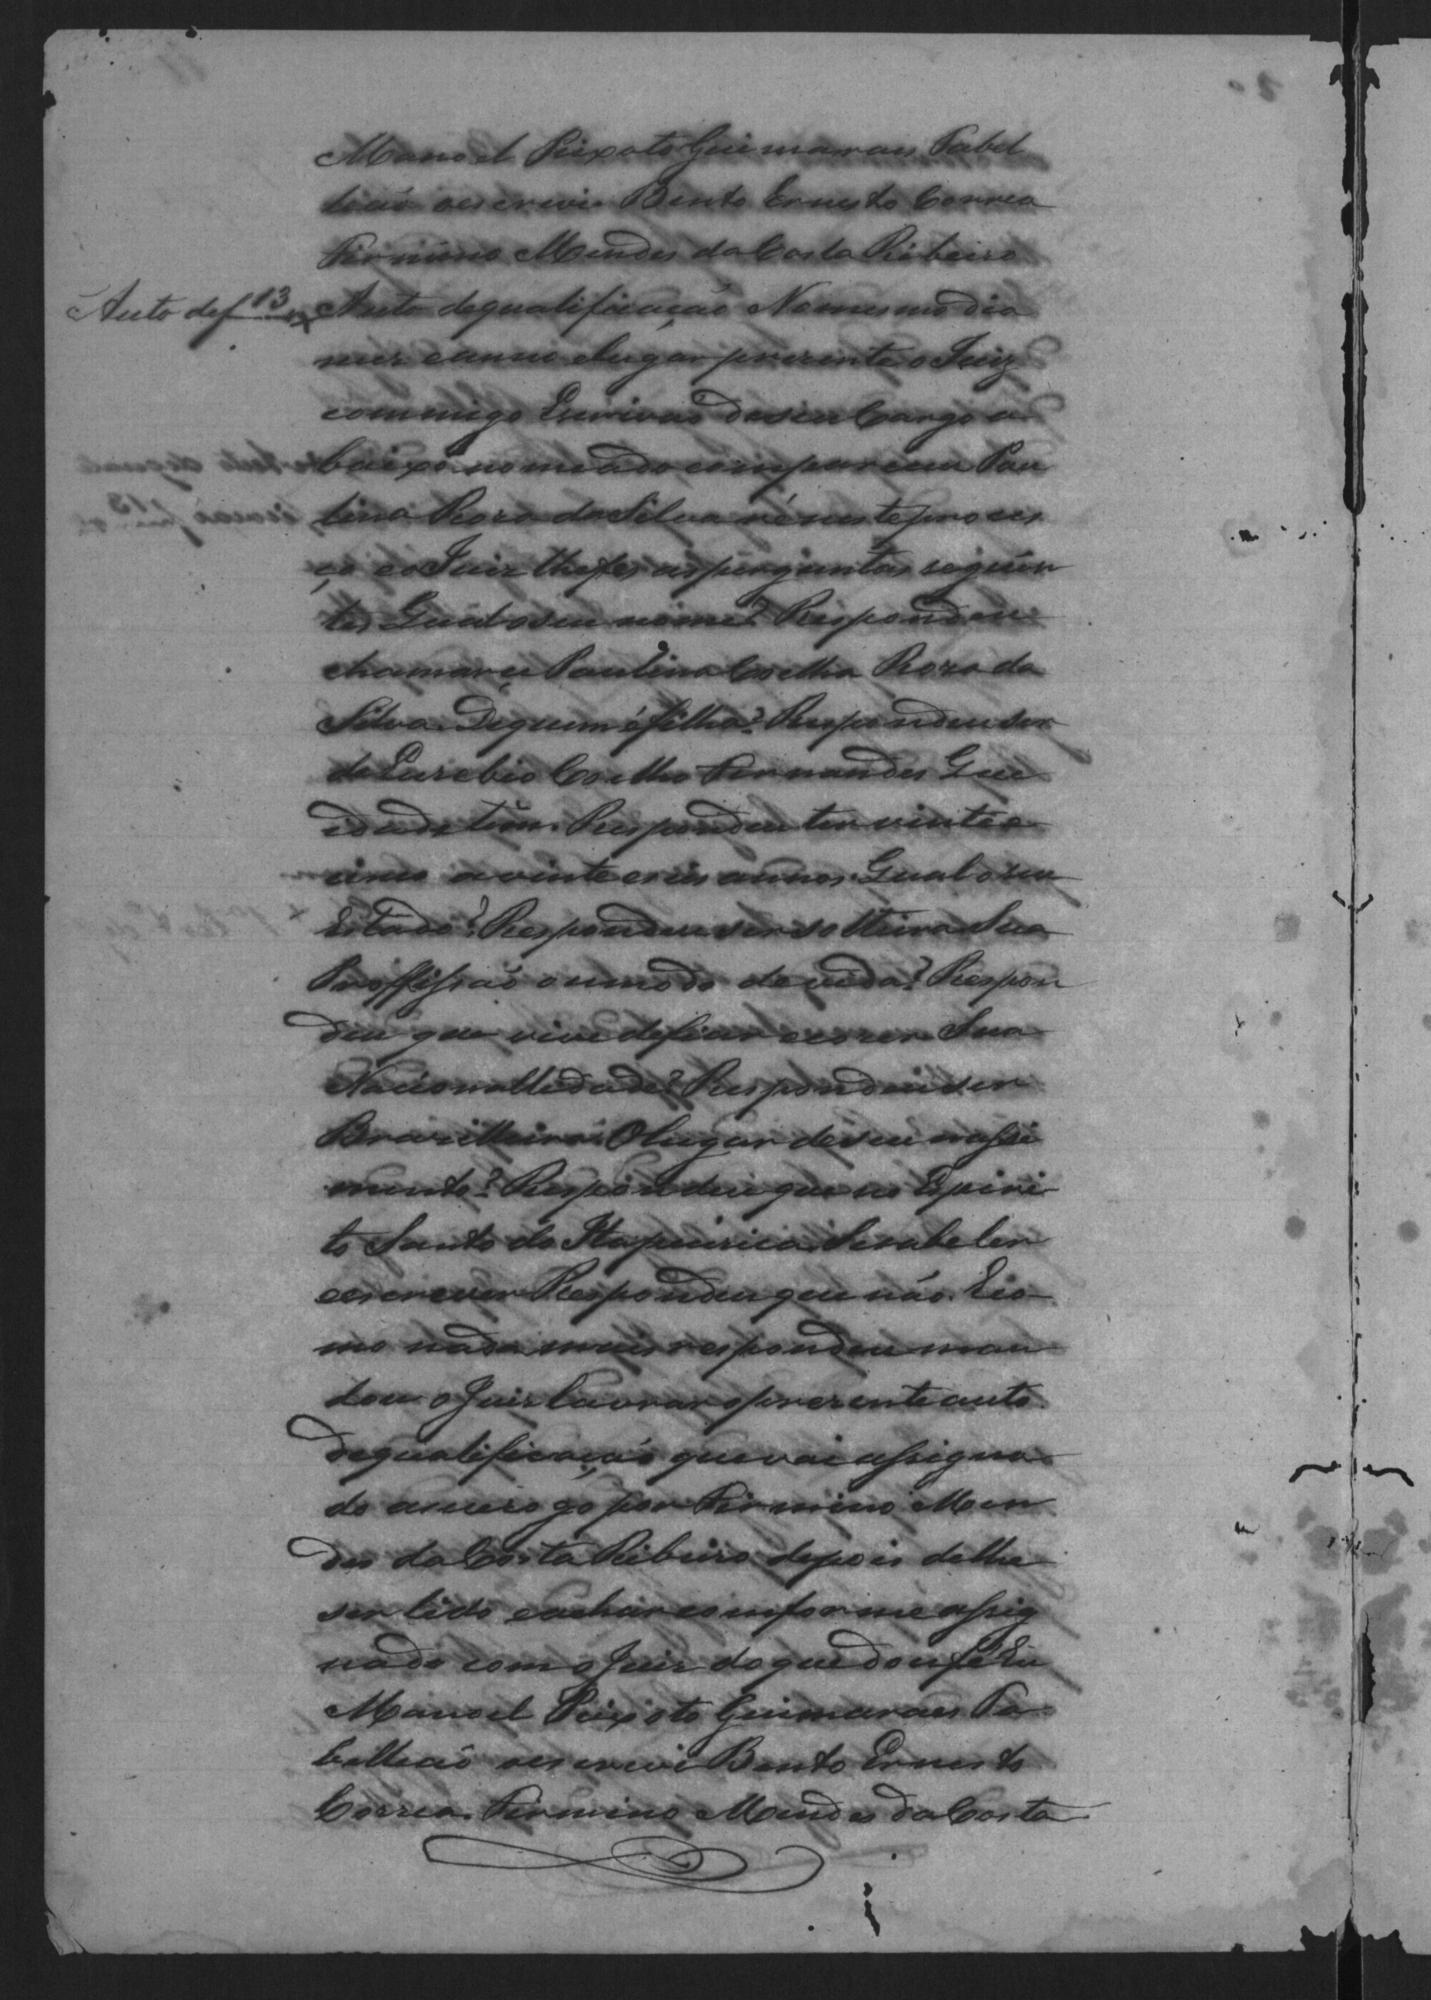 Manoel Peixoto Guimaraes Tabel
lião oescrevi Bento Ernesto Correa
Firmino Mendes da Costa Ribeiro
Auto de f 13
Auto dequalificação Nomesmo dia
mez eanno elugar prezente o Juiz
commigo Escrivão deseu Cargo a
baixo nomeado, compareceu Pau
lina Roza da Silva ré neste proces
ço eo Juiz lhefes asperguntas seguin
tes Qual oseu nome? Respondeu
chamarce Paulina Coelha Roza da
Silva. Dequem é filha? Respondeu ser
de Euzebio Coelho Fernandes Que
idade tem. Respondeu ter vinte e
cinco a vinte eseis annos. Qual o seu
Estado? Respondeu ser solteira Sua
Proffissão oumodo devida? Respon
deu que vive defiar ecozer Sua
Nacionallidade? Respondeu ser
Brazilleira. O lugar deseu nassi
mento? Respondeu que no Espiri
to Santo do Itapicirica. Se sabe ler
eescrever Respondeu que não. Eco
mo nada mais respondeu man
dou o Juiz lavrar oprezente auto
dequalificação que vai assigna
do aseu rogo, por Firmino Men
des da Costa Ribeiro depois delhe
ser lido eachar comforme assig
nado com o Juiz doque dou fé Eu
Manoel Peixoto Guimaraes Ta
bellião oescrevi Bento Ernesto
Correa. Firmino Mendes da Costa